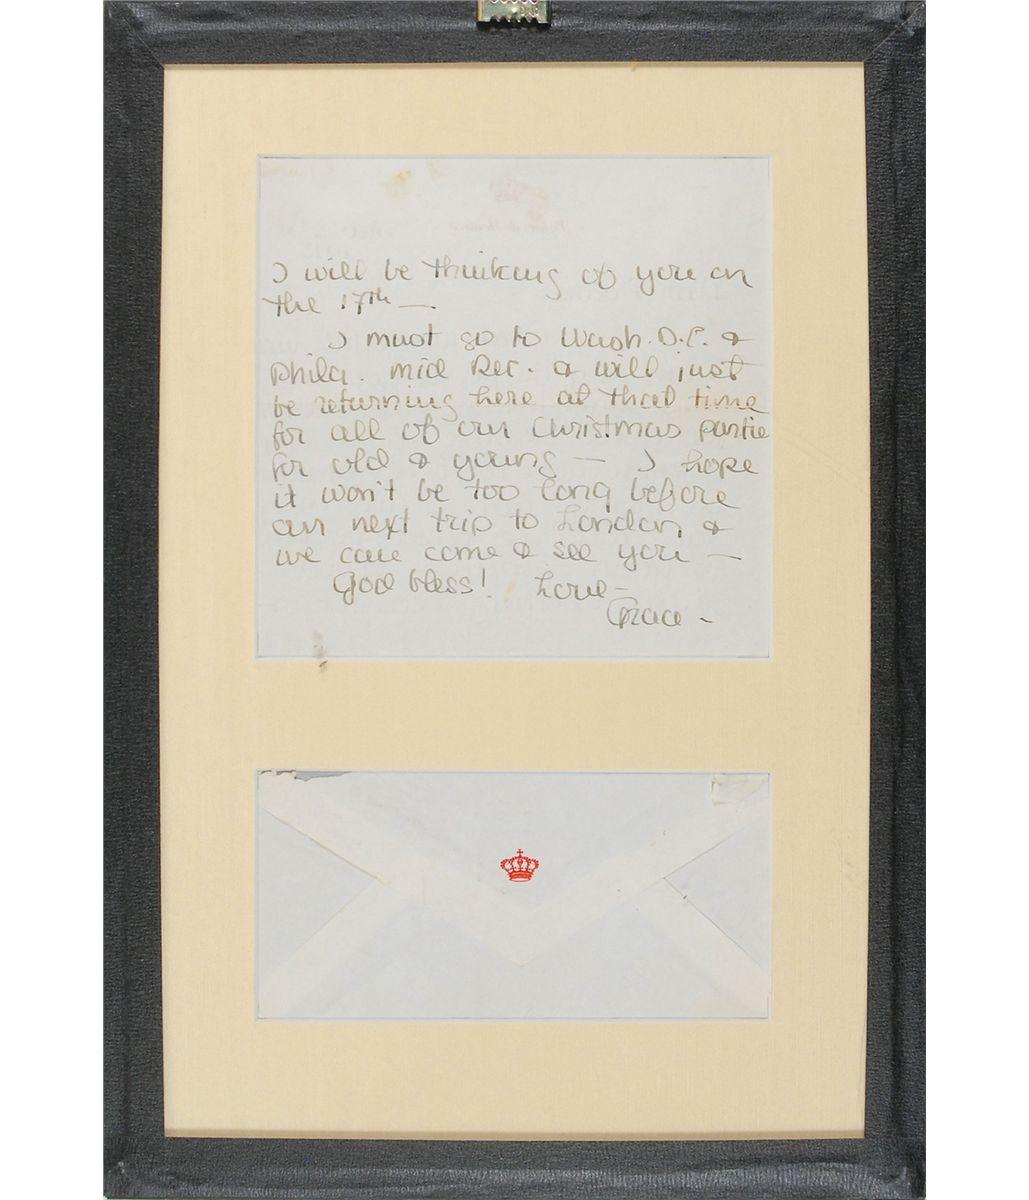 I will be thinking of you on
the 17th —
I must go to Wash. D.C. &
Phila. mid Dec. & will just
be returning here at that time
for all of our Christmas partie
for old & young — I hope
it won't be too long before
our next trip to London, &
we can come & see you —
God bless! Love —
Grace -